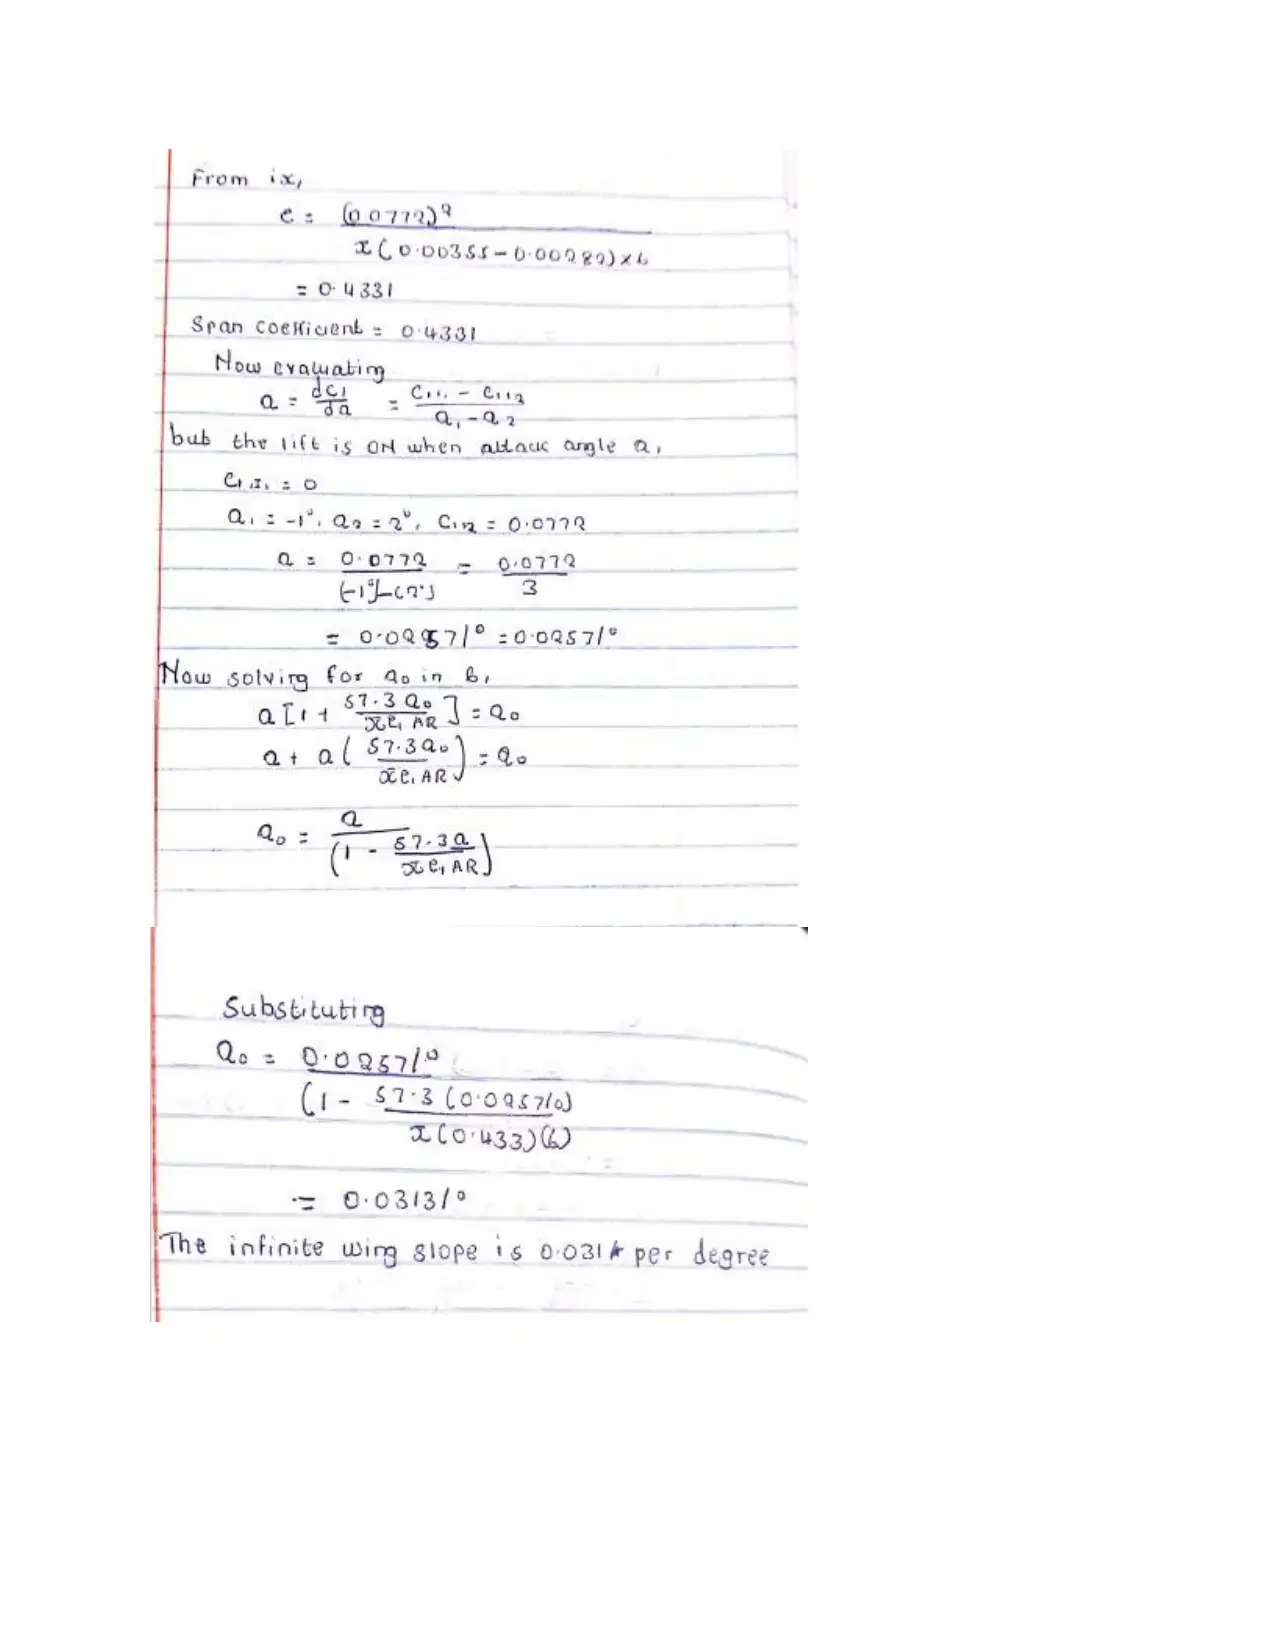 From ix,
e = (0.0772)²
x (0.00355 - 0.00282) x 6
= 0.4331
Span coefficient = 0.4331
Now evaluating
a = dC₁/da = C₁,₁ - C₁,₂ / a₁ - a₂
but the lift is ON when attack angle a₁
C₁,I₁ = 0
a₁ = -1°, a₂ = 2°, C₁,₂ = 0.0772
a = 0.0772 / (-1°)-(2°) = 0.0772 / 3
= 0.0257/° = 0.0257/°
Now solving for a₀ in B,
a [1 + 57.3 a₀ / πe₁ AR] = a₀
a + a ( 57.3 a₀ / πe₁ AR ) = a₀
a₀ = a / (1 - 57.3 a / πe₁ AR)
Substituting
a₀ = 0.0257/°
(1 - 57.3 (0.0257/0)
x (0.433)(6)
= 0.0313/°
The infinite wing slope is 0.031 per degree